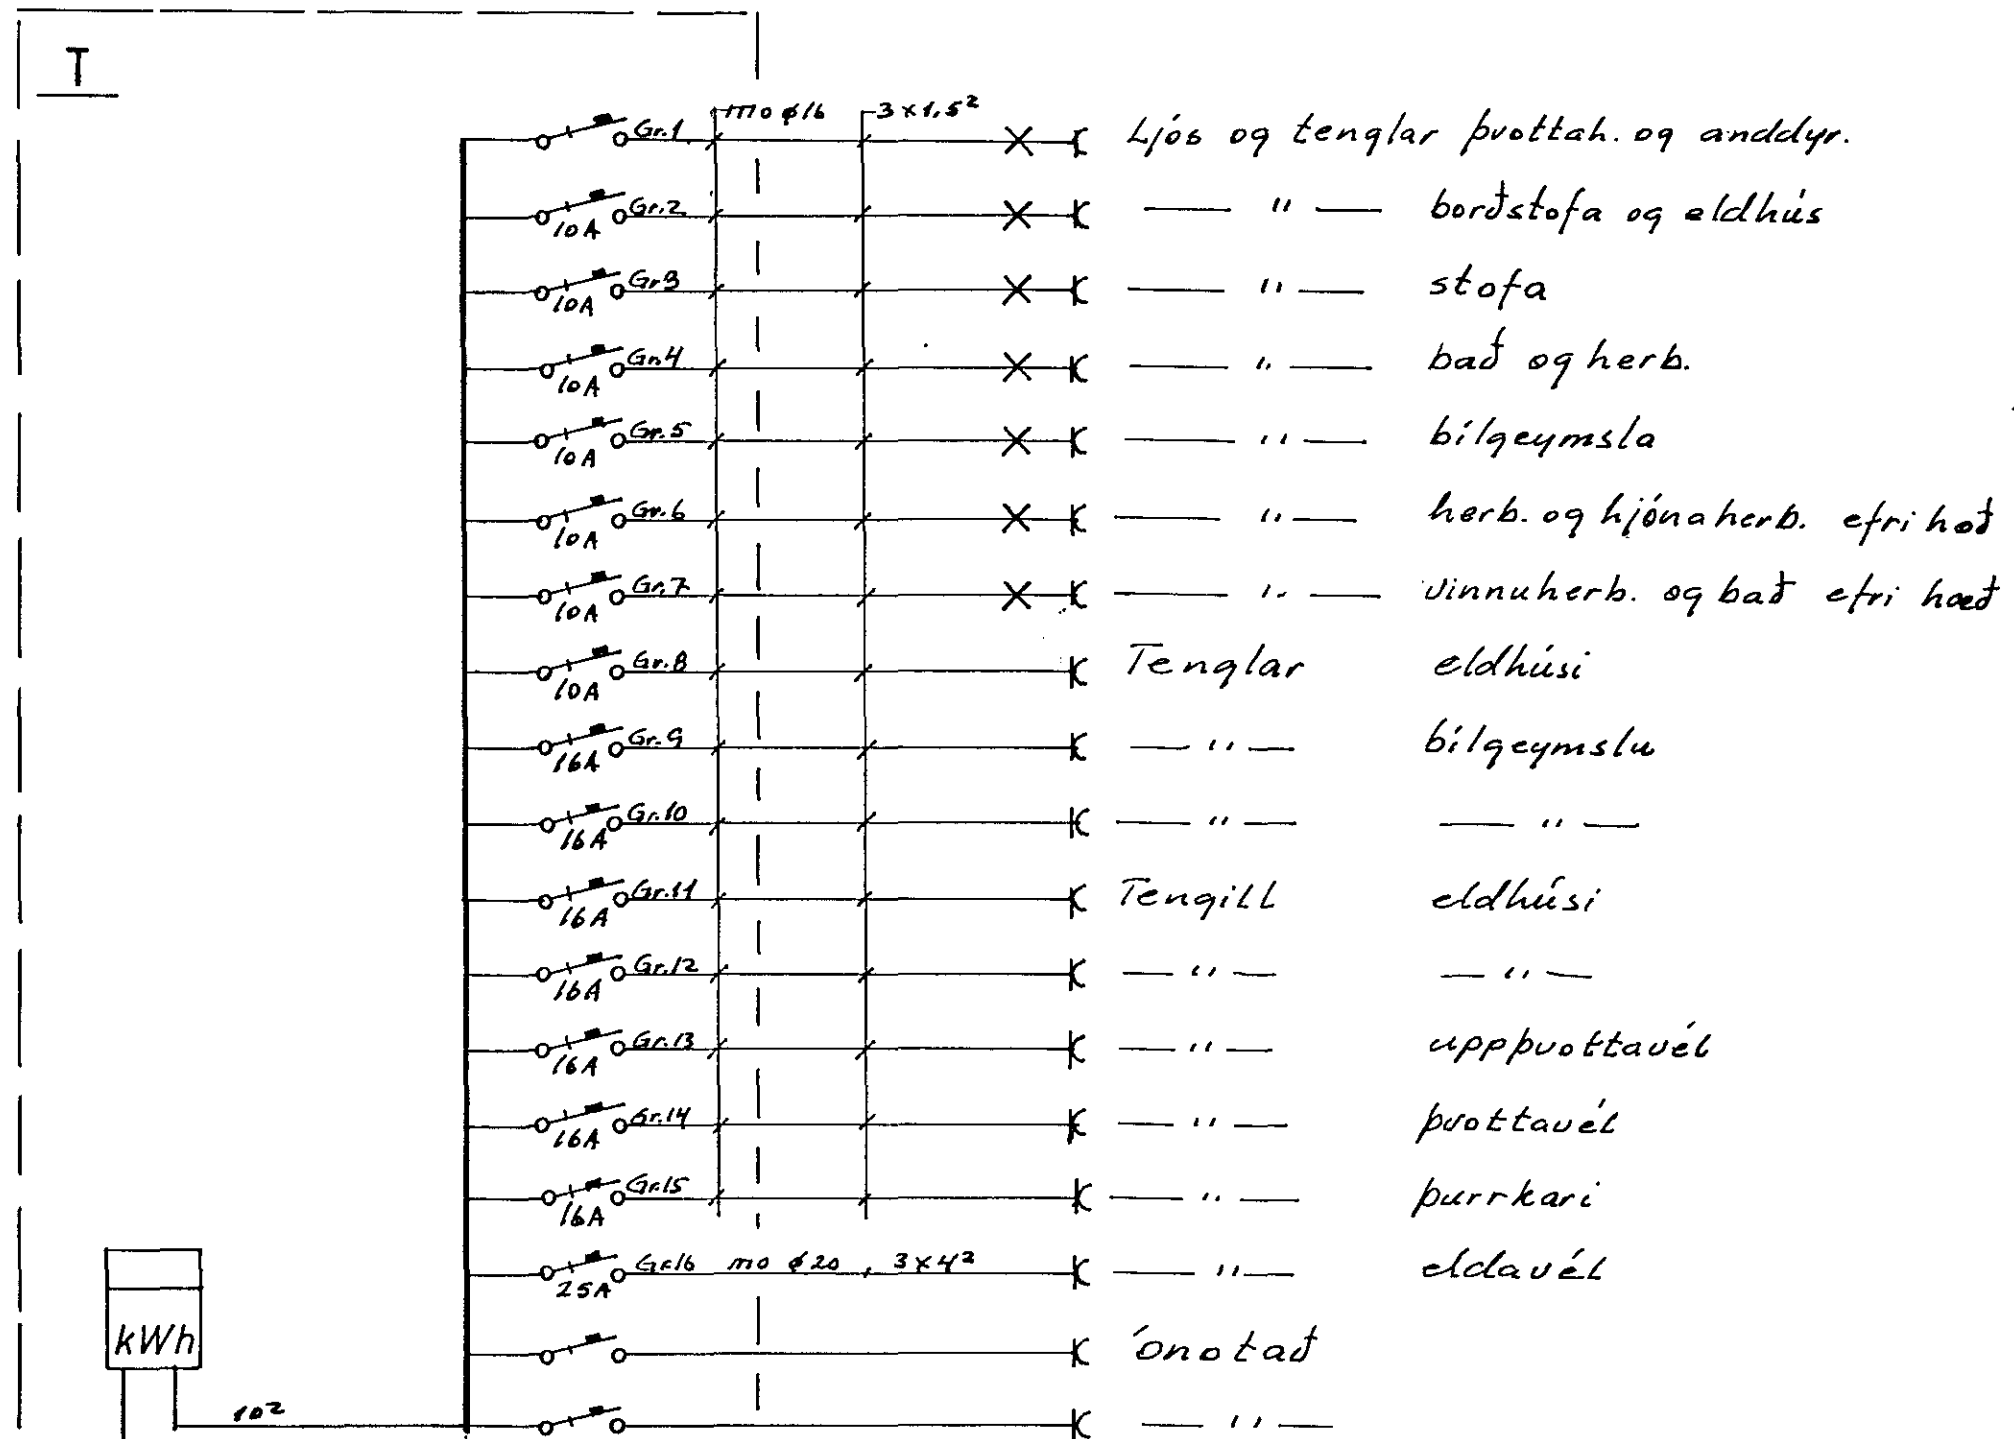 T
Gr.1 mo ø16 3x1,5² Ljós og tenglar þvottah. og anddyr.
10A Gr.2 — " — borðstofa og eldhús
10A Gr.3 — " — stofa
10A Gr.4 — " — bað og herb.
10A Gr.5 — " — bílgeymsla
10A Gr.6 — " — herb. og hjónaherb. efri hæð
10A Gr.7 — " — vinnuherb. og bað efri hæð
10A Gr.8 Tenglar eldhúsi
16A Gr.9 — " — bílgeymslu
16A Gr.10 — " — — " —
16A Gr.11 Tengill eldhúsi
16A Gr.12 — " — — " —
16A Gr.13 — " — uppþvottavél
16A Gr.14 — " — þvottavél
16A Gr.15 — " — þurrkari
25A Gr.16 mo ø20, 3x4² — " — eldavél
kWh Ónotað
10² — " —